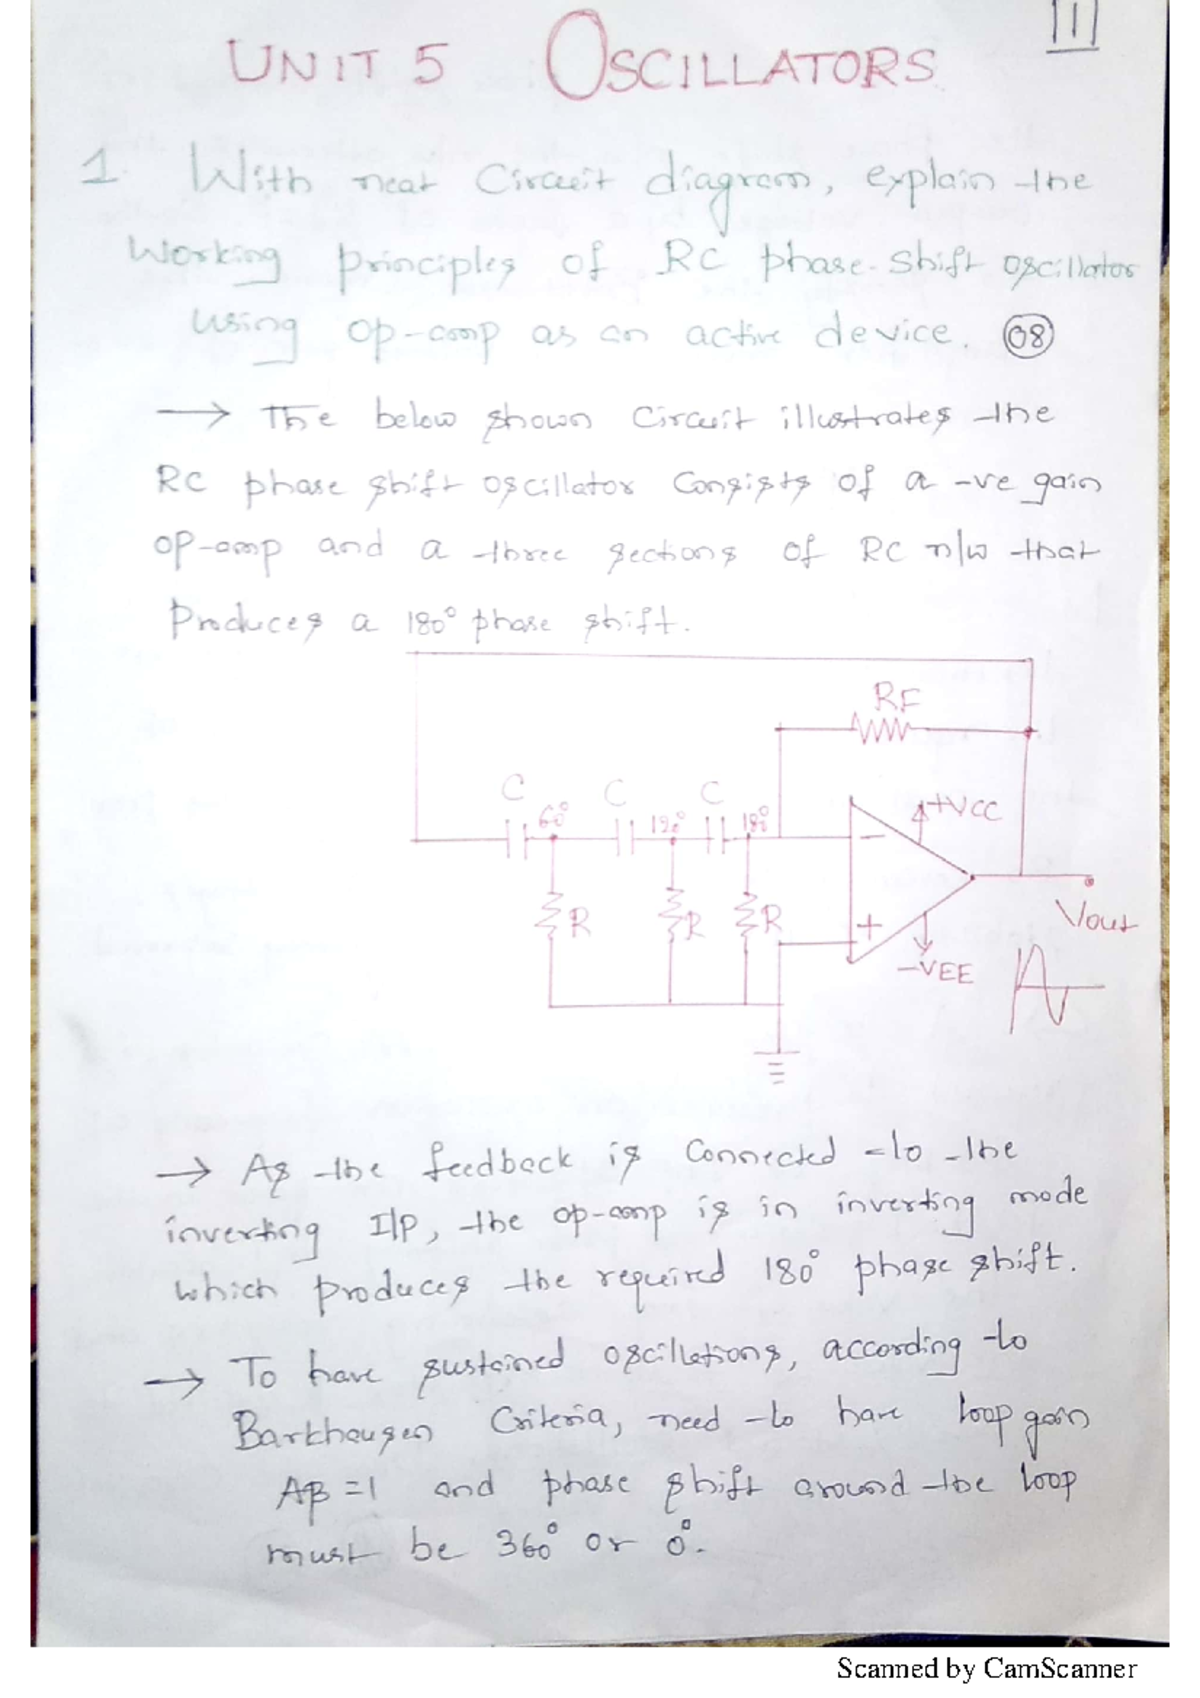 111
UNIT 5 OSCILLATORS
1. With neat Circuit diagram, explain the
Working principles of RC phase-shift oscillator
using op-amp as an active device. 08
→ The below shown Circuit illustrates the
RC phase shift oscillator Consists of a -ve gain
op-amp and a three sections of RC n/w that
Produces a 180° phase shift.
RF
C C C +VCC
60° 120° 180°
−
R R R + Vout
-VEE
→ As the feedback is Connected to the
inverting I/P, the op-amp is in inverting mode
which produces the required 180° phase shift.
→ To have sustained oscillations, according to
Barkhausen Criteria, need to have loop gain
Aβ = 1 and phase shift around the loop
must be 360° or 0°.
Scanned by CamScanner